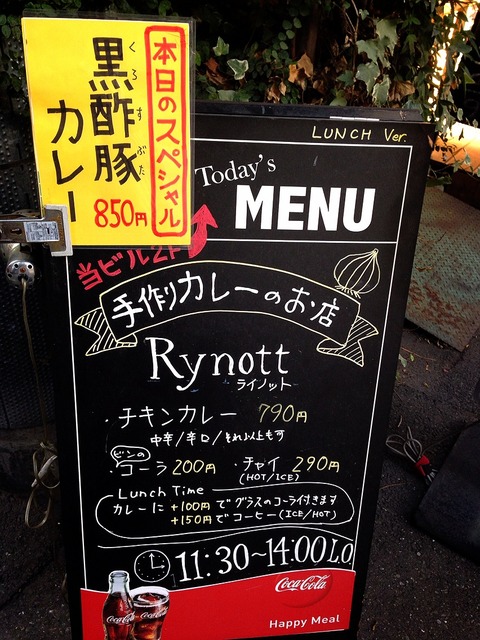 本日のスペシャル
黒酢豚
くろすぶた
カレー
850円
LUNCH Ver.
Today's
MENU
当ビル2F
手作りカレーのお店
Rynott
ライノット
・チキンカレー 790円
中辛/辛口/それ以上も可
・ビンのコーラ 200円 ・チャイ 290円
(HOT/ICE)
Lunch Time
カレーに +100円でグラスのコーラ付きます
+150円でコーヒー(ICE/HOT)
11:30~14:00 L.O.
Coca-Cola
Coca-Cola
Coca-Cola
Happy Meal